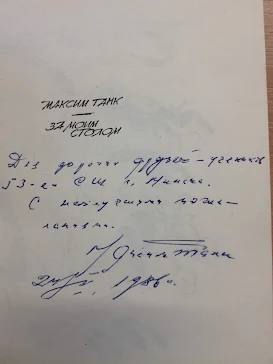 МАКСИМ ТАНК
ЗА МОИМ
СТОЛОМ
Для дорогих друзей – учеников
53-ей СШ г. Минска.
С наилучшими поже-
ланиями.
Максим Танк
1986 г.